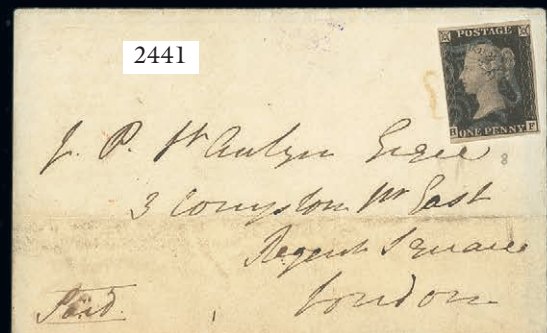 2441
POSTAGE
B ONE PENNY F
J. P. St Aubyn Esqre
3 St East
Regent Square
London
Paid.
8